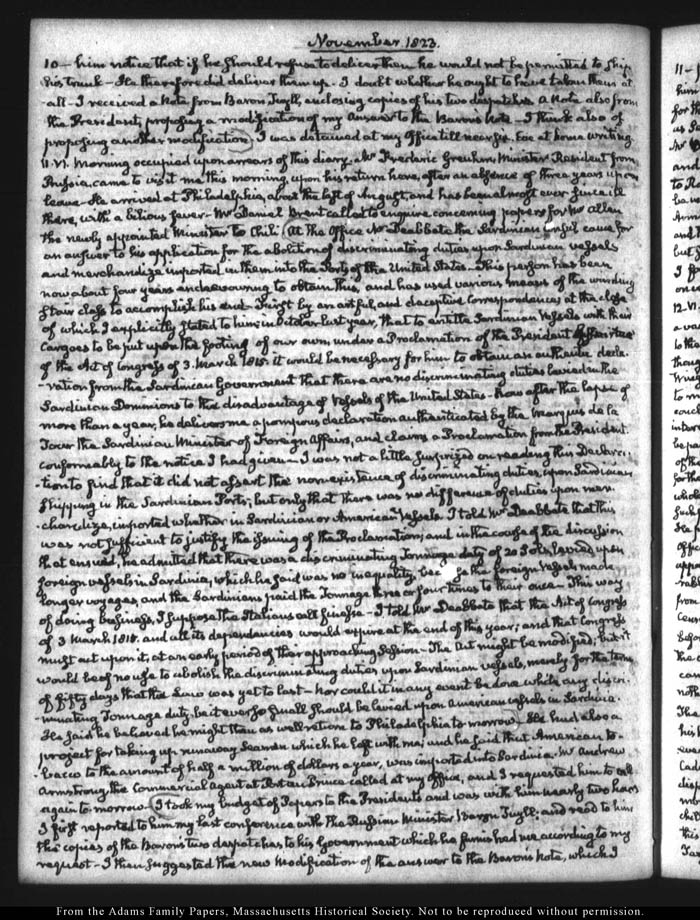 November 1823.
10 — him notice that if he should refuse to deliver them he would not be permitted to ship
his trunk — He therefore did deliver them up. I doubt whether he ought to have taken them at
all — I received a Note from Baron Tuyll, enclosing copies of his two despatches. A Note also from
the President, proposing a modification of my answer to the Baron's Note — I think also of
proposing another modification. I was detained at my Office till near six. Eve at home writing.
11. VI. Morning occupied upon arrears of this diary. Mr Frederic Greuhm, Minister Resident from
Prussia, came to visit me this morning, upon his return here, after an absence of three years upon
leave. He arrived at Philadelphia, about the last of August, and has been almost ever since ill
there, with a bilious fever — Mr Daniel Brent called to enquire concerning papers for Mr Allen
the newly appointed Minister to Chili. (At the Office Mr Deabbate the Sardinian Consul came for
an answer to his application for the abolition of discriminating duties upon Sardinian vessels
and merchandize imported in them into the Ports of the United States — This person has been
now about four years endeavouring to obtain this, and has used various means of the winding
Stair class to accomplish his end — First by an artful, and deceptive correspondence; at the close
of which I explicitly stated to him in October last year, that to entitle Sardinian Vessels with their
Cargoes to be put upon the footing of our own, under a Proclamation of the President
of the Act of Congress of 3. March 1815. it would be necessary for him to obtain an authentic decla-
-ration from the Sardinian Government that there are no discriminating duties levied in the
Sardinian Dominions to the disadvantage of Vessels of the United States — Now after the lapse of
more than a year, he delivers me a pompous declaration authenticated by the Marquis de la
Tour the Sardinian Minister of Foreign Affairs, and claims a Proclamation from the President
conformably to the notice I had given — I was not a little surprized on reading this Declara-
-tion to find that it did not assert the non-existence of discriminating duties, upon Sardinian
shipping in the Sardinian Ports; but only that there was no difference of duties upon mer-
-chandize, imported whether in Sardinian or American Vessels. I told Mr Deabbate that this
was not sufficient to justify the issuing of the Proclamation; and in the course of the discussion
that ensued, he admitted that there was a discriminating Tonnage duty of 20 Sols, levied upon
foreign vessels in Sardinia, which he said was no inequality, the foreign Vessels made
longer voyages, and the Sardinians paid the Tonnage three or four times to their once. This way
of doing business, I suppose the Italians call finesse — I told Mr Deabbate that the Act of Congress
of 3 March 1815. and all its dependencies would expire at the end of this year; and that Congress
must act upon it, at an early period of their approaching Session — The Act might be modified; but it
would be of no use to abolish the discriminating duties upon Sardinian vessels, merely for the term
of fifty days that the Law was yet to last — nor could it in any event be done while any discri-
-minating Tonnage duty, be it ever so small should be levied upon American vessels in Sardinia.
He said he believed he might then as well return to Philadelphia to morrow. He had also a
project for taking up runaway Seamen which he left with me; and he said that American to-
-bacco to the amount of half a million of dollars a year, was imported into Sardinia. Mr Andrew
Armstrong the Commercial agent at Port au Prince called at my Office, and I requested him to call
again to-morrow. (I took my budget of Papers to the Presidents and was with him nearly two hours
I first reported to him my last conference with the Russian Minister Baron Tuyll; and read to him
the copies of the Baron's two despatches to his Government which he furnished me according to my
request — I then suggested the new modification of the answer to the Baron's Note, which I
From the Adams Family Papers, Massachusetts Historical Society. Not to be reproduced without permission.